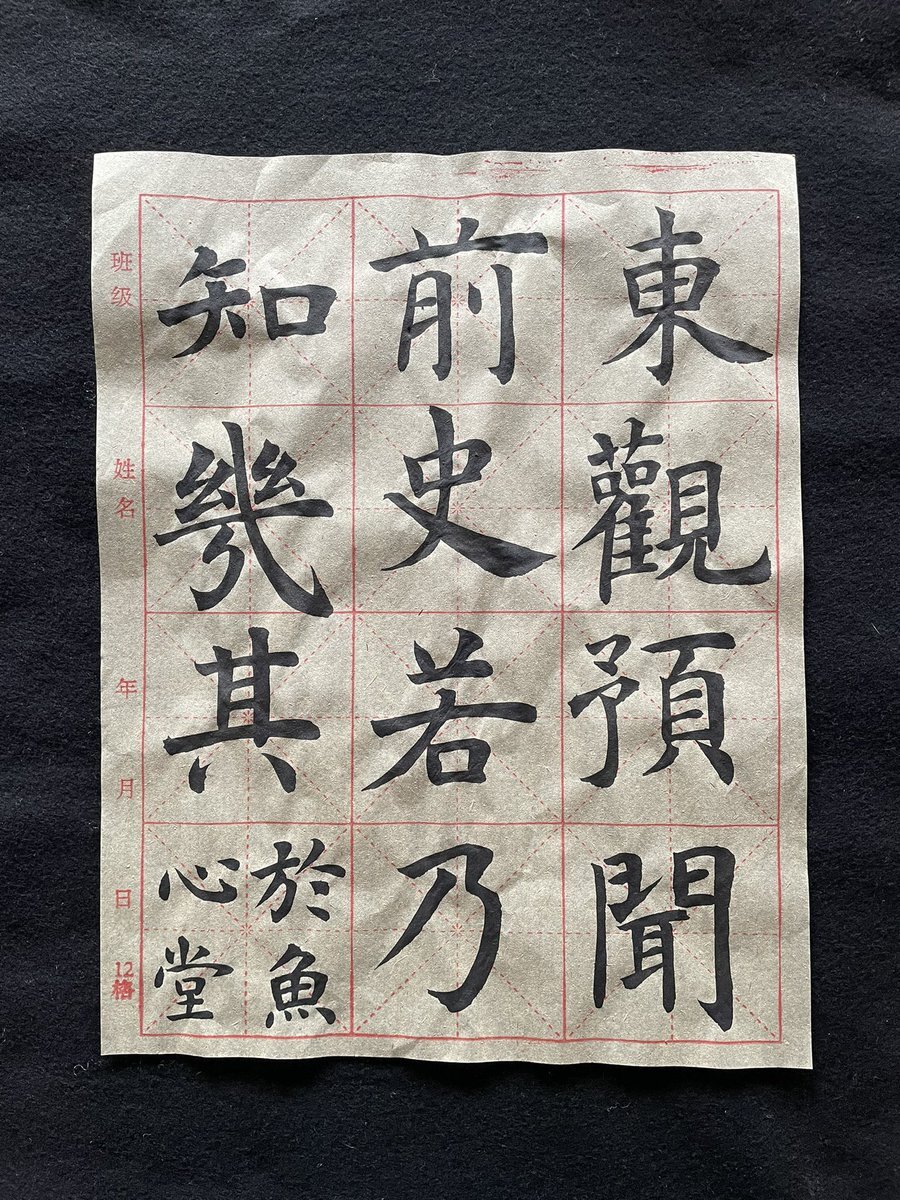 東觀預聞
前史若乃
知幾其
於魚
心堂
班级
姓名
年
月
日
12格